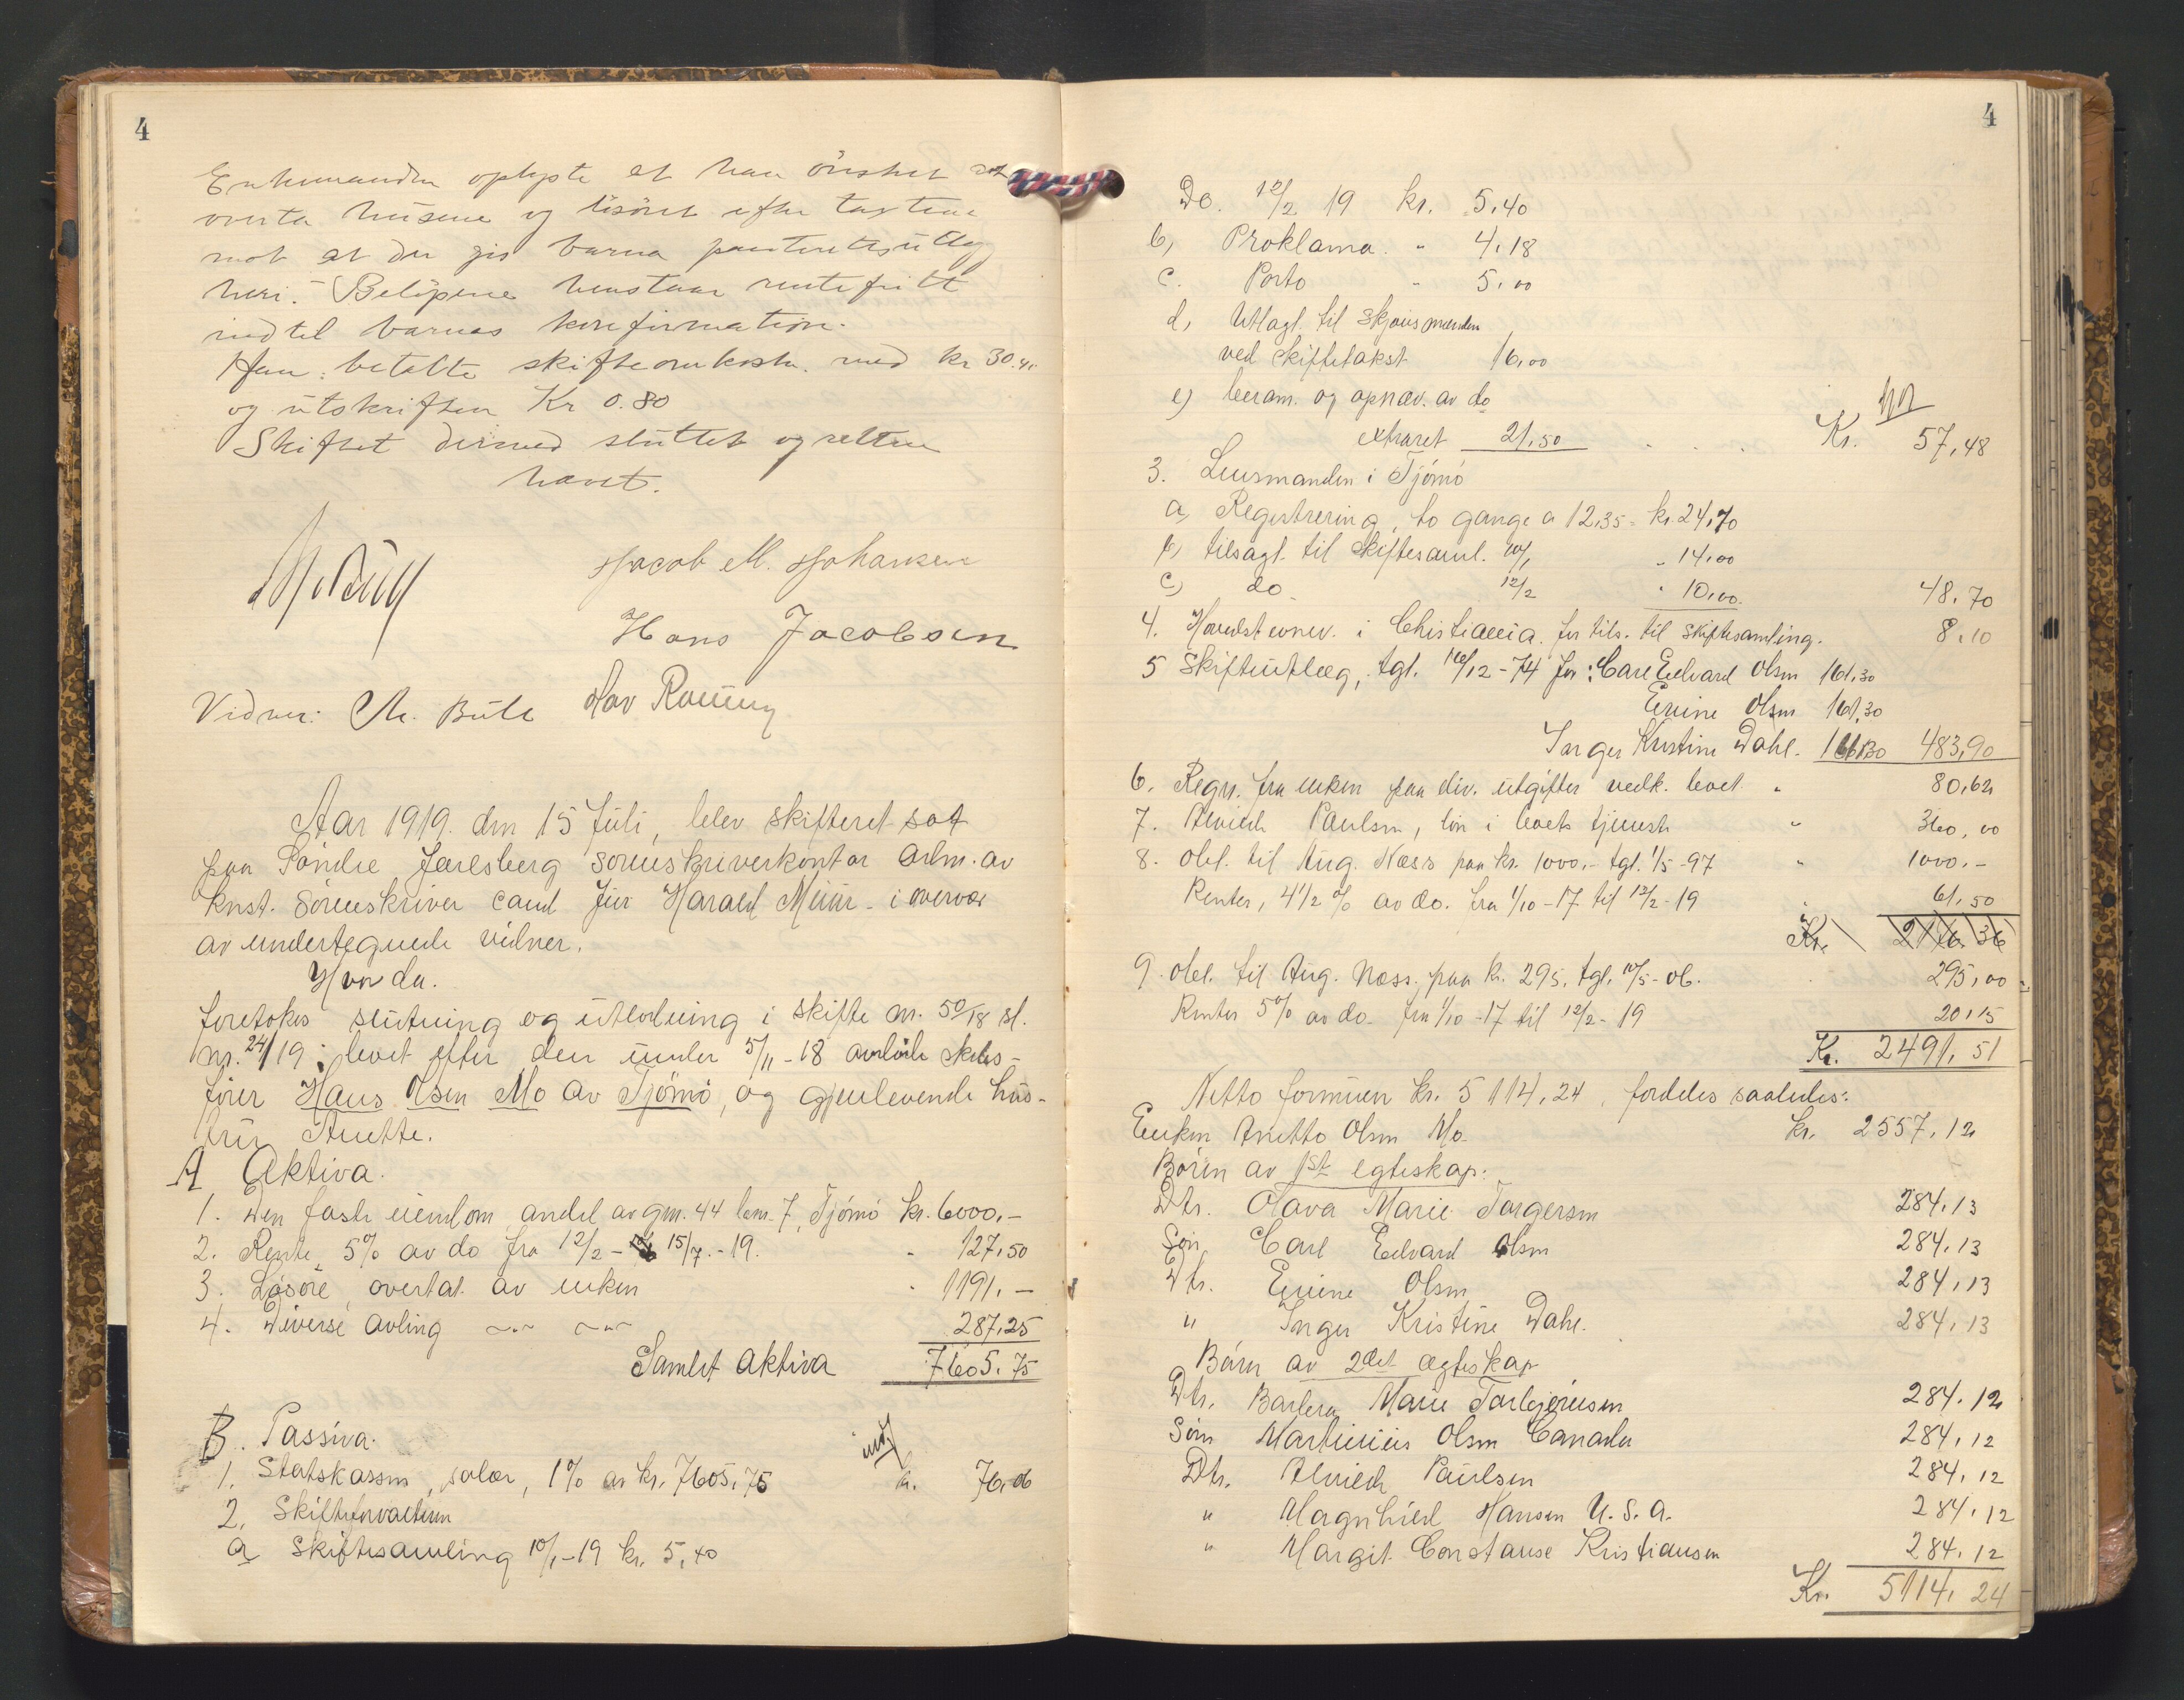 4
Enkemanden oplyste at han önsket at
overta husene og lösöret efter taxterne
mot at der gis barna panteretsutlæg
heri. Belöpene henstaar rentefritt
indtil barnas konfirmation.
Han betalte skifteomkostn. med kr 30.41
og utskriften Kr 0.80
Skiftet dermed sluttet og retten
hævet.
Jacob M. Johansen
Hans Jacobsen
Vidner: Chr. Bull Hav Rønning
Aar 1919. den 15 Juli, blev skifteret sat
paa Söndre Jarlsberg sorenskriverkontor adm. av
knst. Sorenskriver cand jur Harald Muur i overvær
av undertegnede vidner.
Hvor da.
foretokes slutning og utlodning i skifte nr. 50/18 sl.
nr. 24/19: boet efter den under 5/11-18 avdöde skibs-
förer Hans Olsen Mo av Tjömö, og gjenlevende hus-
tru Anette.
A Aktiva.
1. Den faste eiendom andel av gnr. 44 bnr. 7, Tjömö kr. 6000,-
2. Rente 5% av do fra 12/2 - 15/7.-19. " 127,50
3. Lösöre, overtat av enken " 1191.-
4. Diverse avling -"- -"- 287,25
Samlet aktiva 7605.75
B. Passiva.
1. Statskassen, salær, 1% av kr. 7605,75 kr. 76,06
2. Skifteforvalteren
a Skiftesamling 10/1-19 kr. 5,40
4
Do. 12/2 19 kr. 5,40
b, Proklama. " 4,18
c. Porto " 5,00
d, Utlagt til skjönsmænden
ved skiftetakst 16,00
e) beram. og opnav. av do
extraret 21,50 . . . Kr. 57,48
3. Lensmanden i Tjömö
a, Registrering, to gange a 12,35 = kr. 24,70
b, tilsagt. til skiftesaml. 10/1 " 14,00
c) do 12/2 " 10,00. 48,70
4. Hovedstevnev. i Christiania for tils. til skiftesamling. 8,10
5 Skifteutlæg, tgl. 16/12-74 for: Carl Edvard Olsen 161,30
Erine Olsen 161,30
Inger Kristine Dahl. 161,30 483,90
6. Regn. fra enken paa div. utgifter vedk. boet " 80,62
7. Alviede Paulsen, lön i boets tjeneste " 360,00
8. Obl. til Aug. Næss paa kr. 1000,- tgl. 1/5-97 " 1000.-
Renter, 4 1/2 % av do. fra 1/10-17 til 12/2-19 " 61,50
Kr. 2176.36
9. Obl. til Aug. Næss, paa kr. 295, tgl. 10/5-06. 295,00
Renter 5% av do. fra 1/10-17 til 12/2-19 20,15
Kr. 2491,51
Netto formuen kr. 5114,24, fordeles saaledes:
Enken Anette Olsen Mo kr. 2557,12
Börn av 1ste egteskap:
Dtr. Olava Marie Torgersen 284,13
Sön Carl Edvard Olsen 284,13
Dtr. Erine Olsen 284,13
" Inger Kristine Dahl. 284,13
Börn av 2det ægteskap
Dtr. Barbra Marie Torbjörnsen 284.12
Sön Martinius Olsen Canada 284,12
Dtr. Alviede Paulsen 284,12
" Magnhild Hansen U.S.A. 284,12
" Margit Constanse Kristiansen 284.12
Kr. 5114,24